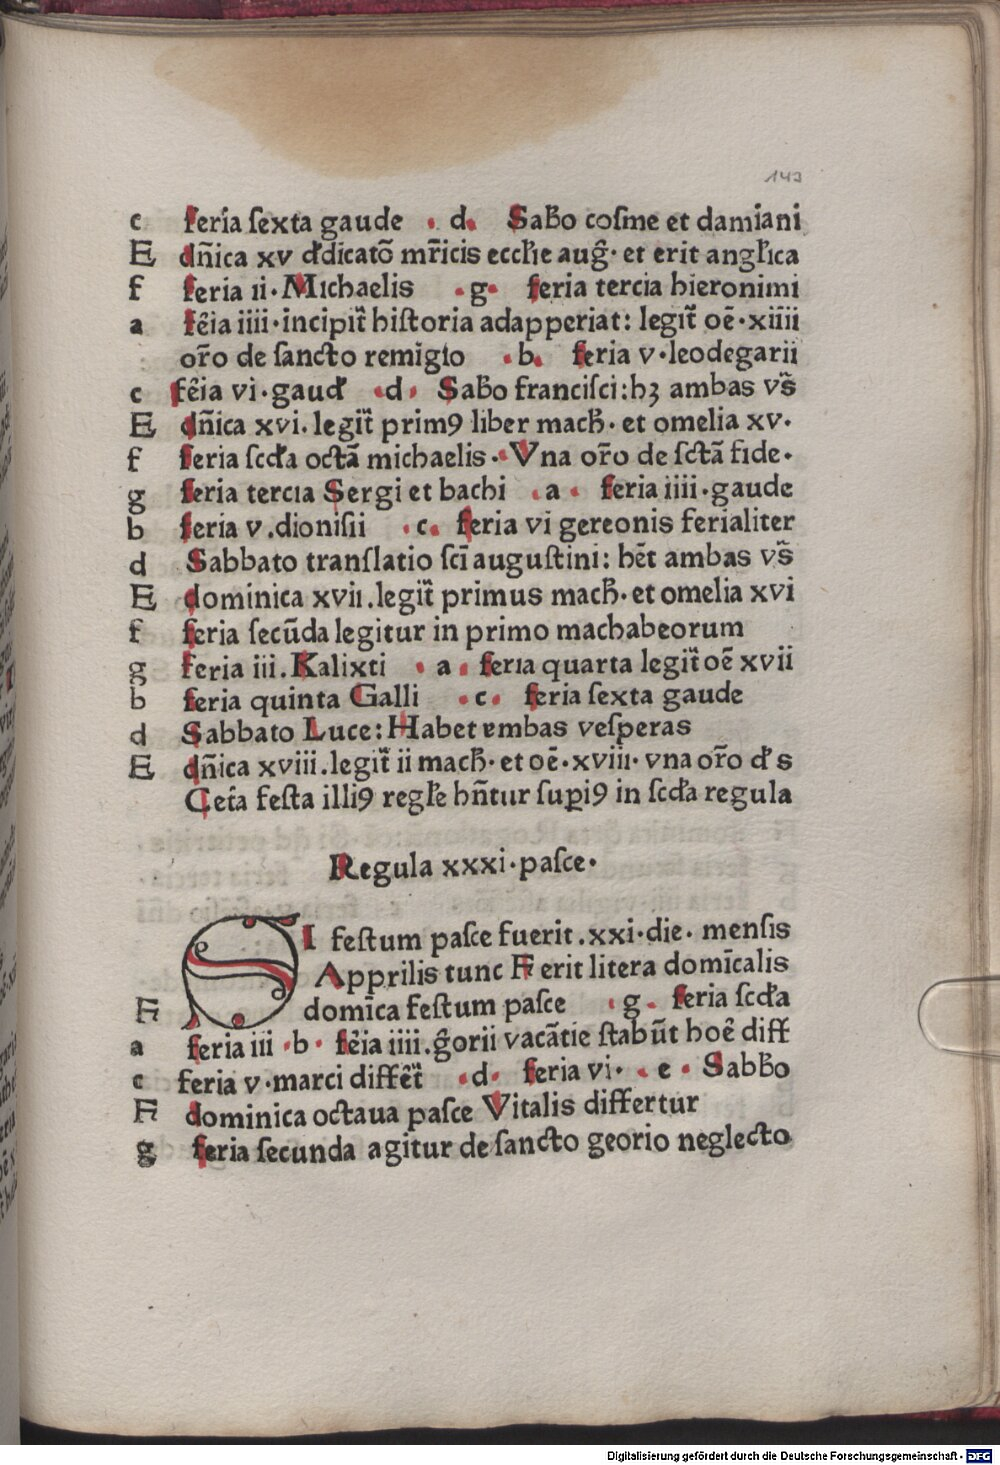 143
c ſeria ſexta gaude · d. Sabo coſme et damiani
E dñica xv dꝺicatō mr̄icis eccłie aug̃· et erit angłica
f feria ii·Michaelis ·g· feria tercia hieronimi
a fēia iiii·incipit̃ hiſtoria adapperiat: legit̃ oē·xiiii
or̃o de ſancto remigio ·b. feria v·leodegarii
c fēia vi·gaud ·d· Sabo franciſci:hꝫ ambas vs̃
E dñica xvi. legit̃ primꝰ liber mach̃· et omelia xv·
f feria ſcda octā michaelis··Vna or̃o de ſctā fide·
g feria tercia Sergi et bachi .a· feria iiii·gaude
b feria v.dioniſii ·c. feria vi gereonis ferialiter
d Sabbato tranſlatio ſcī auguſtini: hēt ambas vs̃
E dominica xvii.legit̃ primus mach̃·et omelia xvi
f feria ſecūda legitur in primo machabeorum
g feria iii.Kalixti · a . feria quarta legit̃ oē xvii
b feria quinta Galli ·c· feria ſexta gaude
d Sabbato Luce:Habet embas veſperas
E dñica xviii.legit̃ ii mach̃·et oē·xviii·vna or̃o d s
Cetā feſta illiꝰ regłe hñtur ſupiꝰ in ſcda regula
Regula xxxi·paſce·
SI feſtum paſce fuerit.xxi·die· menſis
Apprilis tunc F erit litera domīcalis
F domīca feſtum paſce ·g. feria ſcda
a feria iii ·b· fēia iiii.g̃orii vacātie ſtabūt hoē diff
c feria v·marci differ̃t ·d· feria vi· . e · Sabbo
F dominica octaua paſce Vitalis differtur
g feria ſecunda agitur de ſancto georio neglecto
Digitalisierung gefördert durch die Deutsche Forschungsgemeinschaft - DFG